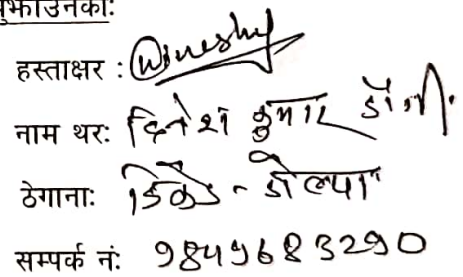 बुझाउनेका:
हस्ताक्षर : Dineshy
नाम थर: दिनेश कुमार डाँगी.
ठेगाना: डिकोट - डोल्पा
सम्पर्क नं: 9849683290